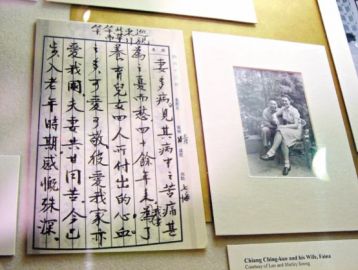 妻多病見其病中之苦痛甚
為之憂而愁四十餘年來為了
養育兒女四人所付出的心血
之多可愛可敬彼愛我家亦
愛我兩夫妻共甘同苦今已
入老年時期感慨殊深
Chiang Ching-kuo and his Wife, Faina
Courtesy of Leo and Matley Soong